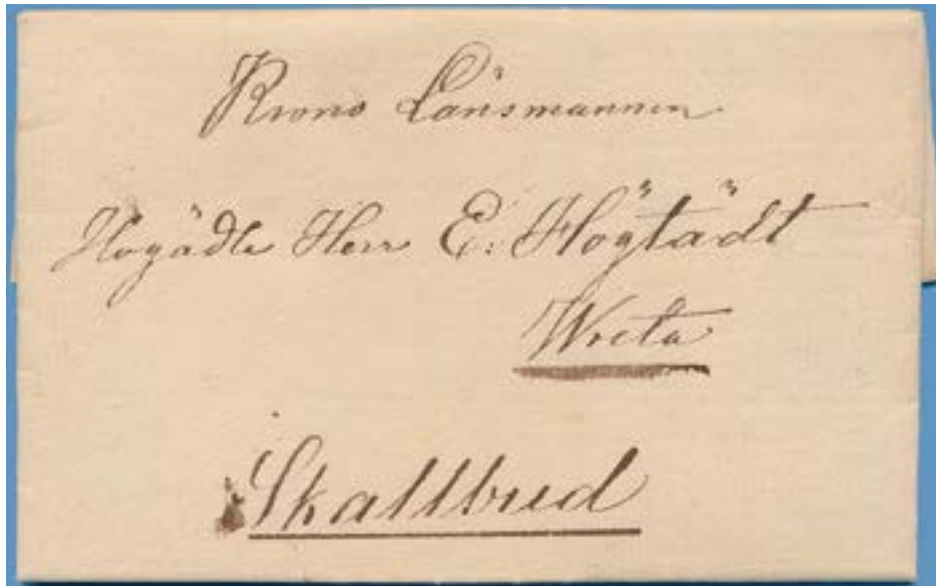 Krono Länsmannen
Högädle Herr E. Högtädt
Wreta
Skallbud